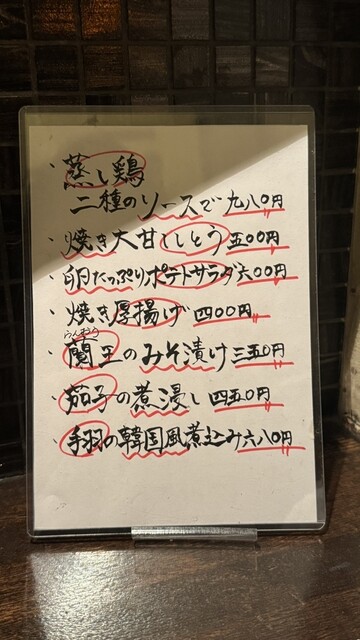 ・蒸し鶏
二種のソースで 九八〇円
・焼き大甘ししとう 五〇〇円
・卵たっぷりポテトサラダ 六〇〇円
・焼き厚揚げ 四〇〇円
らんおう
・蘭王のみそ漬け 三五〇円
・茄子の煮浸し 四五〇円
・手羽の韓国風煮込み 六八〇円